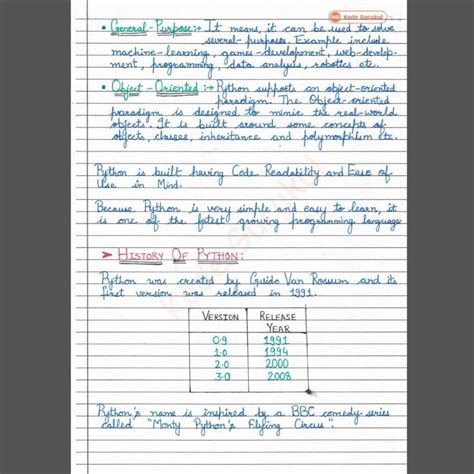 Kode Gurukul
• General-Purpose:- It means, it can be used to solve
several-purposes. Example include
machine-learning, games-development, web-develop-
ment, programming, data analysis, robotics etc.
• Object-Oriented :- Python supports an object-oriented
paradigm. The Object-oriented
paradigm is designed to mimic the real-world
objects. It is built around some concepts of
objects, classes, inheritance and polymorphism etc.
Python is built having Code Readability and Ease of
Use in Mind.
Because Python is very simple and easy to learn, it
is one of the fatest growing programming language
➤ HISTORY OF PYTHON:
Python was created by Guido Van Rossum and its
first version was released in 1991.
VERSION RELEASE
YEAR
0.9 1991
1.0 1994
2.0 2000
3.0 2008
Python's name is inspired by a BBC comedy series
called "Monty Python's Flying Circus".